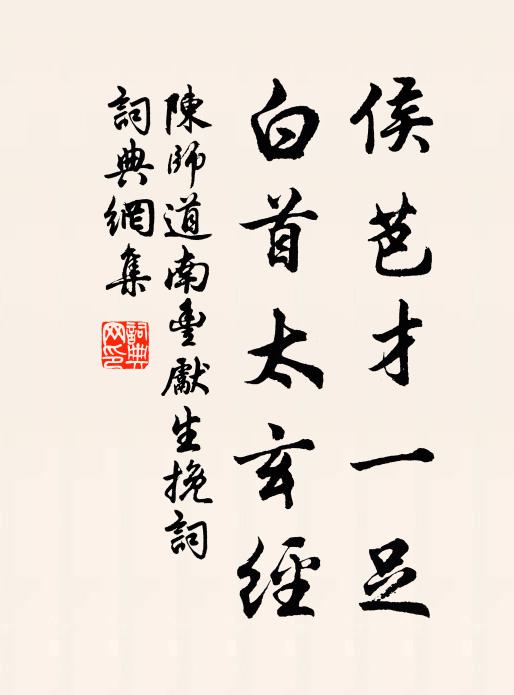 侯芭才一足
白首太玄經
陳師道南豐獻生挽詞
詞典網集
詞典網印